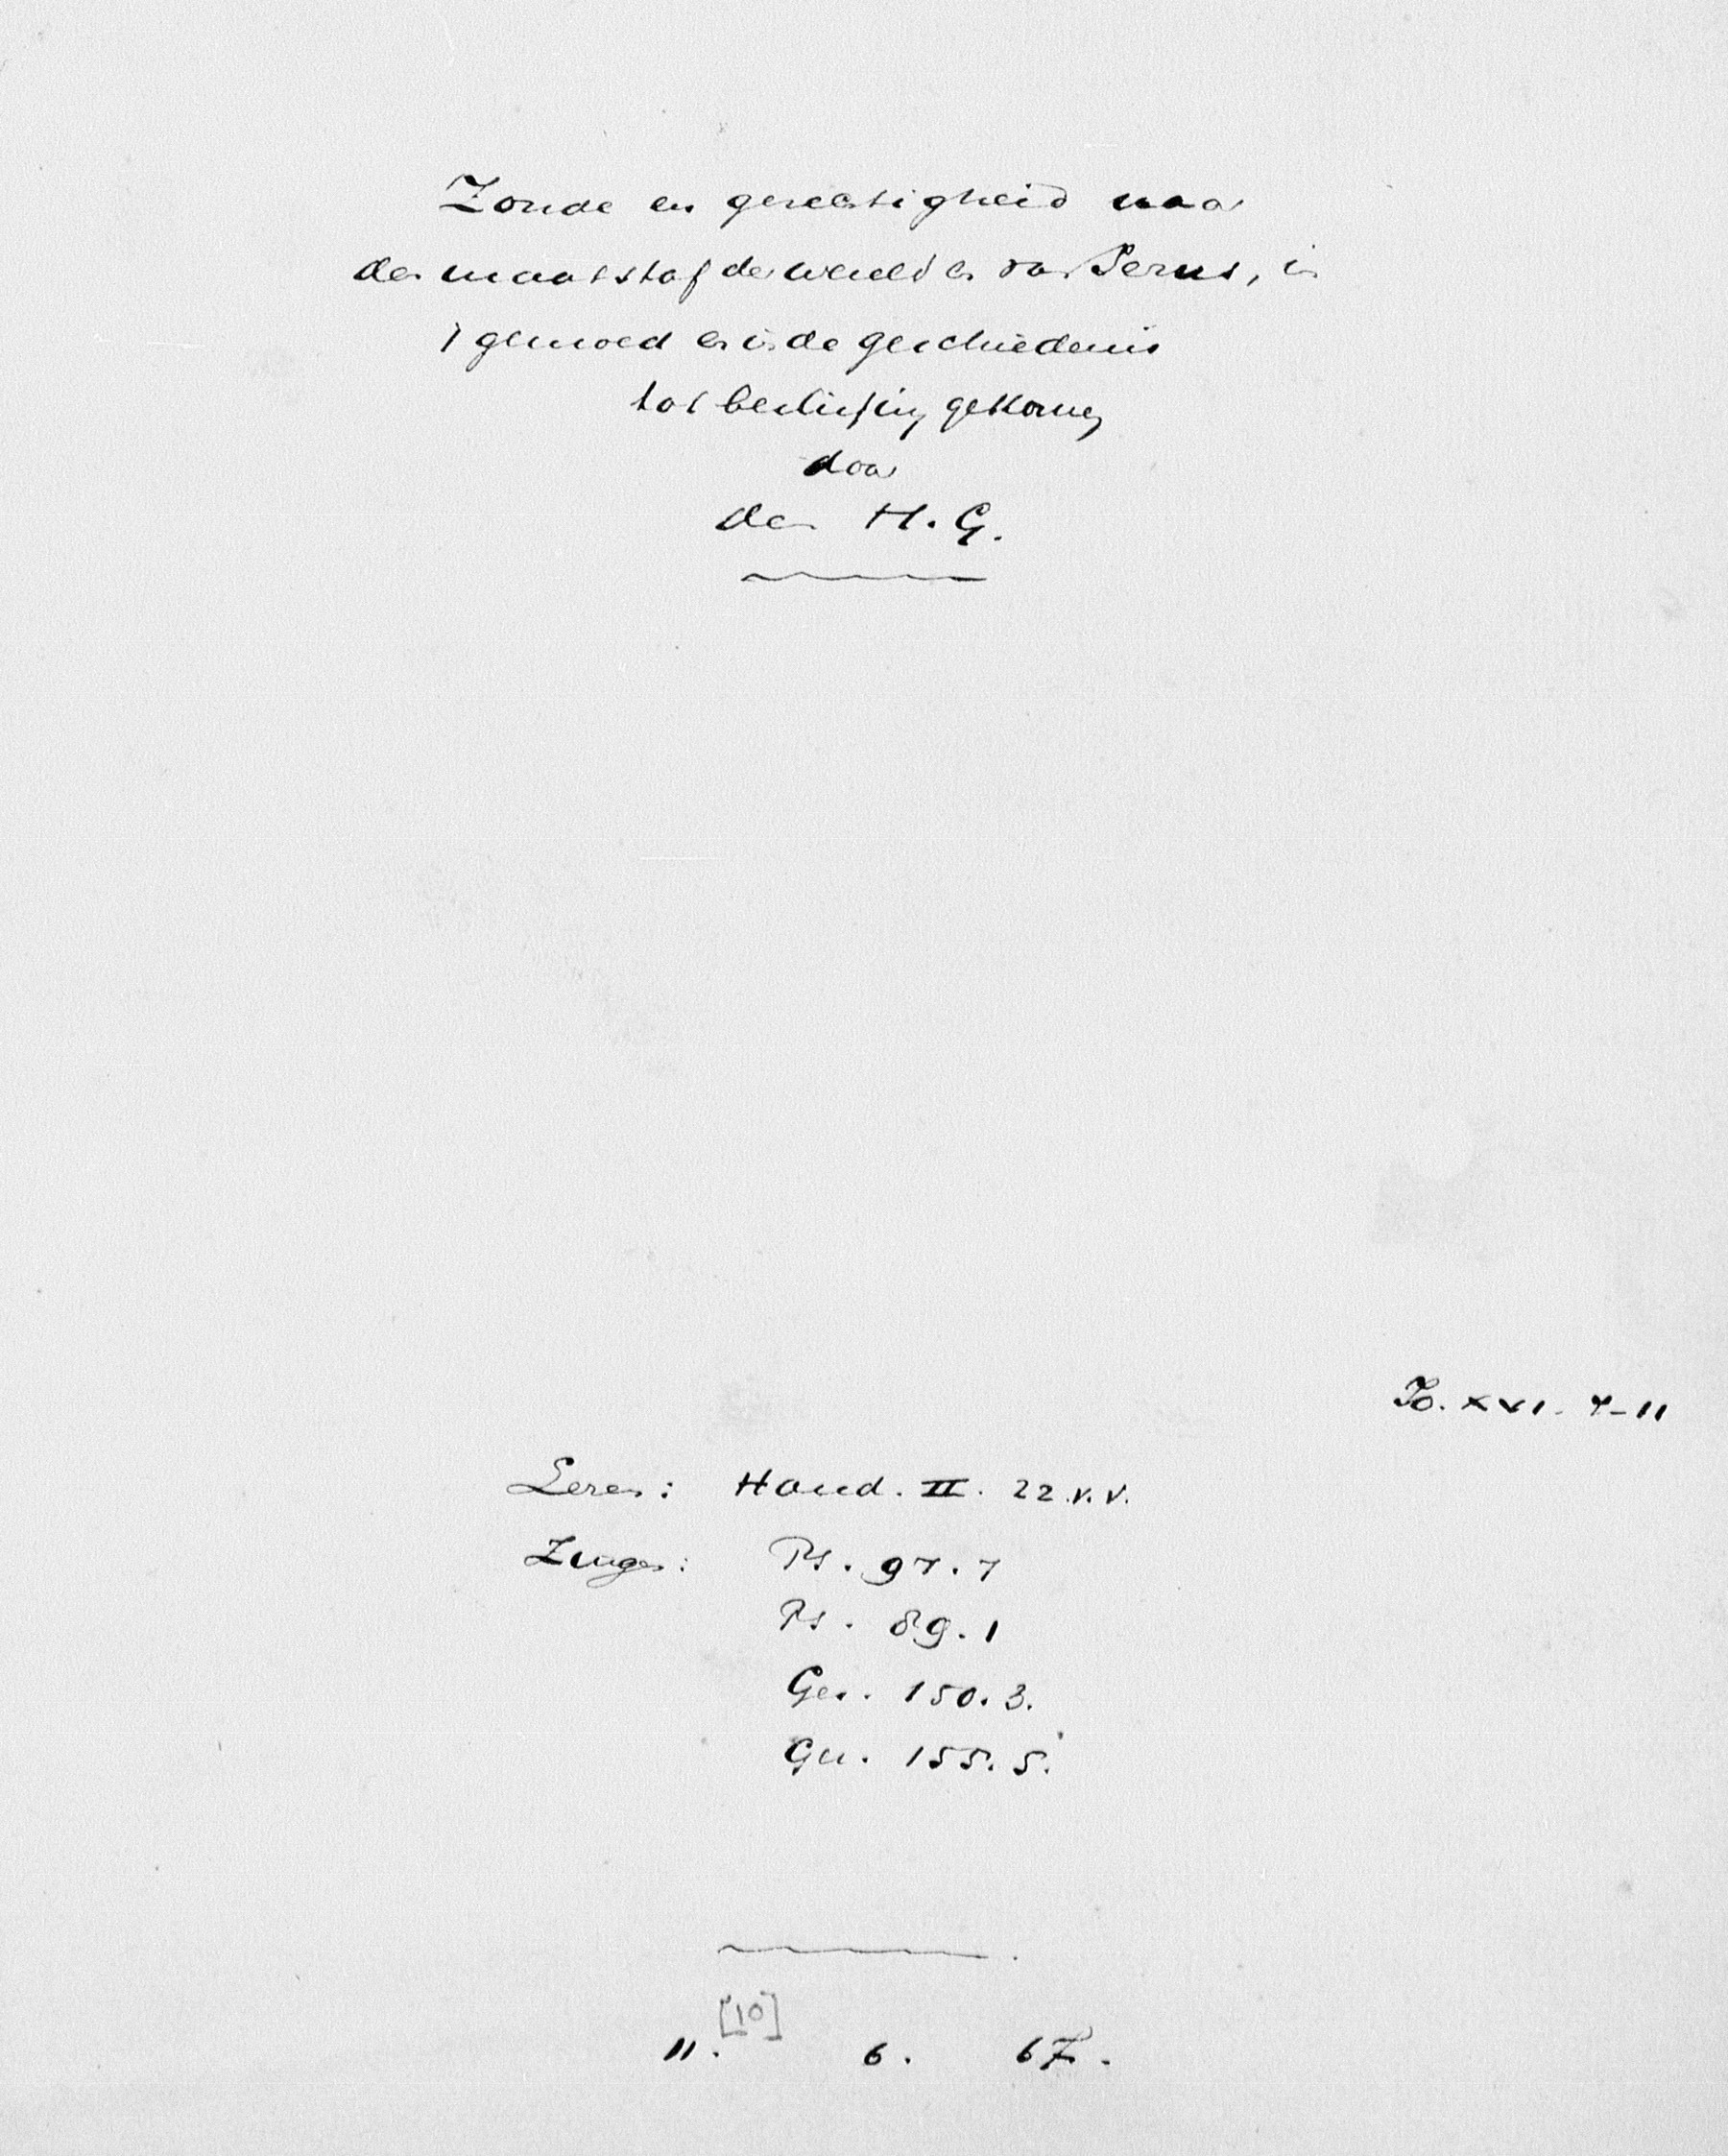 Zonde en gerechtigheid naar
den maatstaf der wereld en van Jezus, in
't gemoed en in de geschiedenis
tot beslissing gekomen
door
den H. G.
Jo. XVI. 7-11
Lezen: Hand. II. 22. v.v.
Zingen: Ps. 97. 7
Ps. 89. 1
Gez. 150. 3.
Gez. 155. 5.
[10]
11. 6. 67.